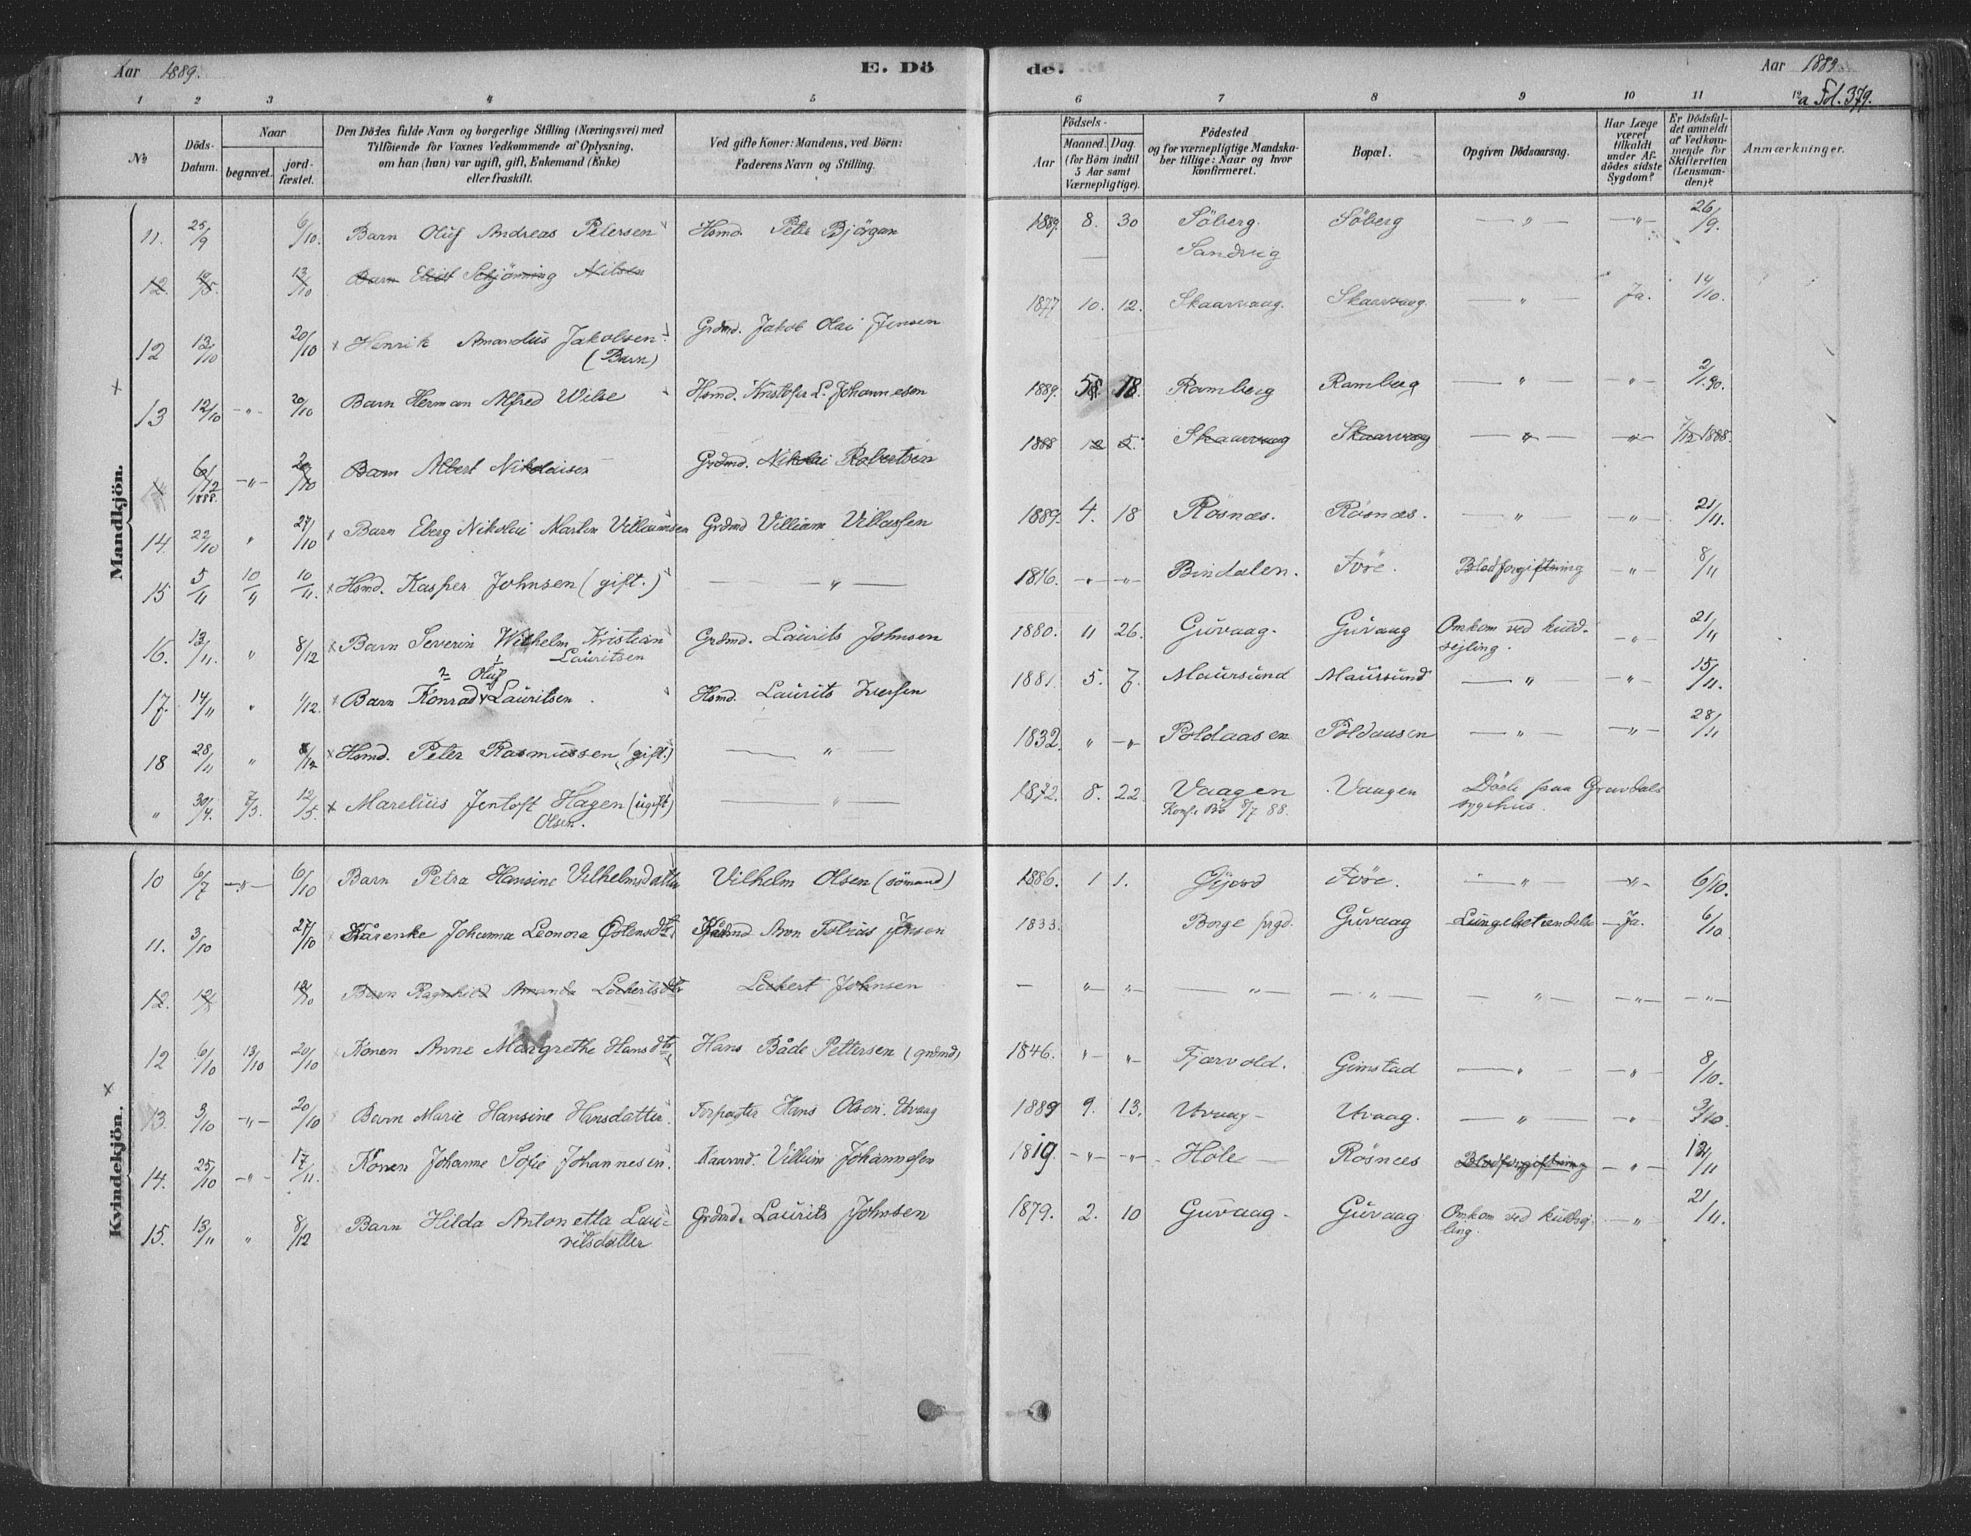 Aar 1889.
E. Dö
de.
Aar 1889
1 2 3 4 5 6 7 8 9 10 11 12
a Fol. 379.
№
Döds-Datum.
Naar
begravet.
jord-fæstet.
Den Dödes fulde Navn og borgerlige Stilling (Næringsvei) med
Tilföiende for Voxnes Vedkommende af Oplysning,
om han (hun) var ugift, gift, Enkemand (Enke)
eller fraskilt.
Ved gifte Koner: Mandens, ved Börn:
Faderens Navn og Stilling.
Födsels-
Aar
Maaned. Dag.
(for Börn indtil
5 Aar samt
Værnepligtige).
Födested
og for værnepligtige Mandska-
ber tillige: Naar og hvor
konfirmeret.
Bopæl.
Opgiven Dödsaarsag.
Har Læge
været
tilkaldt
under Af-
dödes sidste
Sygdom?
Er Dödsfal-
det anmeldt
af Vedkom-
mende for
Skifteretten
(Lensman-
den)?
Anmærkninger.
Mandkjön.
11. 25/9 6/10. Barn Oluf Andreas Petersen Hsmd. Peter Bjørgan 1889. 8. 30 Söberg. Söberg — " — — " — 26/9.
Sandvig
12. 13/10 Barn Schjönning Nilsen
12 13/10 20/10 Henrik Amandus Jakobsen Grdmd. Jakob Olai Jensen 1877 10. 12. Skaarvaag. Skaarvaag. " Ja. 14/10.
(Barn)
13 12/10 — " — 20/10 Barn Herman Alfred Wilse Hsmd. Kristofer L. Johannesen 1889. 18. Ramberg Ramberg — " — — " — 2/1.90.
6/12 1888. — " — 20/10 Barn Albert Nikolaisen Grdmd. Nikolai Robertsen 1888 12 5. Skaarvaag Skaarvaag — " — — " — 7/12 1888.
14. 22/10 " 27/10 Barn Eberg Nikolai Martin Villiamsen Grdmd Villiam Villassen 1889. 4. 18 Rösnæs. Rösnæs. — " — — " — 21/11.
15 5/11 10/11 10/11. Hsmd. Kasper Johnsen (gift.) — " — 1816. — " — — " — Bindalen. Före. Blodforgiftning — " — 8/11
16. 13/11. " 8/12 Barn Severin Wilhelm Kristian Grdmd. Laurits Johnsen 1880. 11 26. Guvaag. Guvaag Omkom ved kuld- — " — 21/11
Lauritsen sejling.
Oluf
17. 14/11 " 1/12. Barn Konrad Lauritsen. Hsmd. Laurits Iversen 1881. 5. 7. Maursund Maursund — " — — " — 15/11.
18 28/11 " 8/12 Hsmd. Peter Rasmussen (gift.) — " — 1832. " — " — Poldaasen Poldaasen — " — — " — 28/11
" 30/4. 7/3. 12/5. Marelius Jentoft Hagen (ugift) — " — 1872. 8. 22. Vaagen Vaagen Döde paa Gravdals
Olsen. Konf. i Bö 8/7 88. sygehus.
Kvindekjön.
10 6/7 — " — 6/10 Barn Petra Hansine Vilhelmsdatter Vilhelm Olsen (sömand) 1886. 1 1. Gjerd Före. — " — — " — 6/10.
11. 3/10 27/10 Johanna Leonora Aron Tobias Jensen 1833. Borge prgd. Guvaag Lungebetændelse — Ja. 6/10
12. 12/10 Barn Ragnhild Amanda Lockertsdtr Lockert Johnsen — " — " — — " — — " — — " — — " — — " —
12 6/10 13/10 20/10 Konen Anne Margrethe Hansdtr Hans Både Pettersen (grdmd) 1846. " — " Fjærvold. Gimstad — " — — " — 8/10.
13. 3/10 — " — 20/10 Barn Marie Hansine Hansdatter Forpagter Hans Olsen. Utvaag 1889 9. 13. Utvaag — Utvaag. — " — — " — 3/10.
14. 25/10 — " — 17/11. Konen Johanne Sofie Johannesen. Kaarmd. Villum Johannesen 1819. — " — — " — Hole — Rösnæs Blodforgiftning — " — 12/11
15. 13/11 " 8/12 Barn Hilda Antonetta Lau- Grdmd. Laurits Johnsen 1879. 2. 10 Guvaag — Guvaag Omkom ved kuldsej- — " — 21/11.
ritsdatter ling.